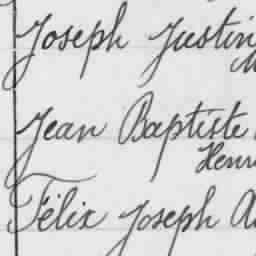 Joseph Justin
M
Jean Baptiste
Henri
Félix Joseph A